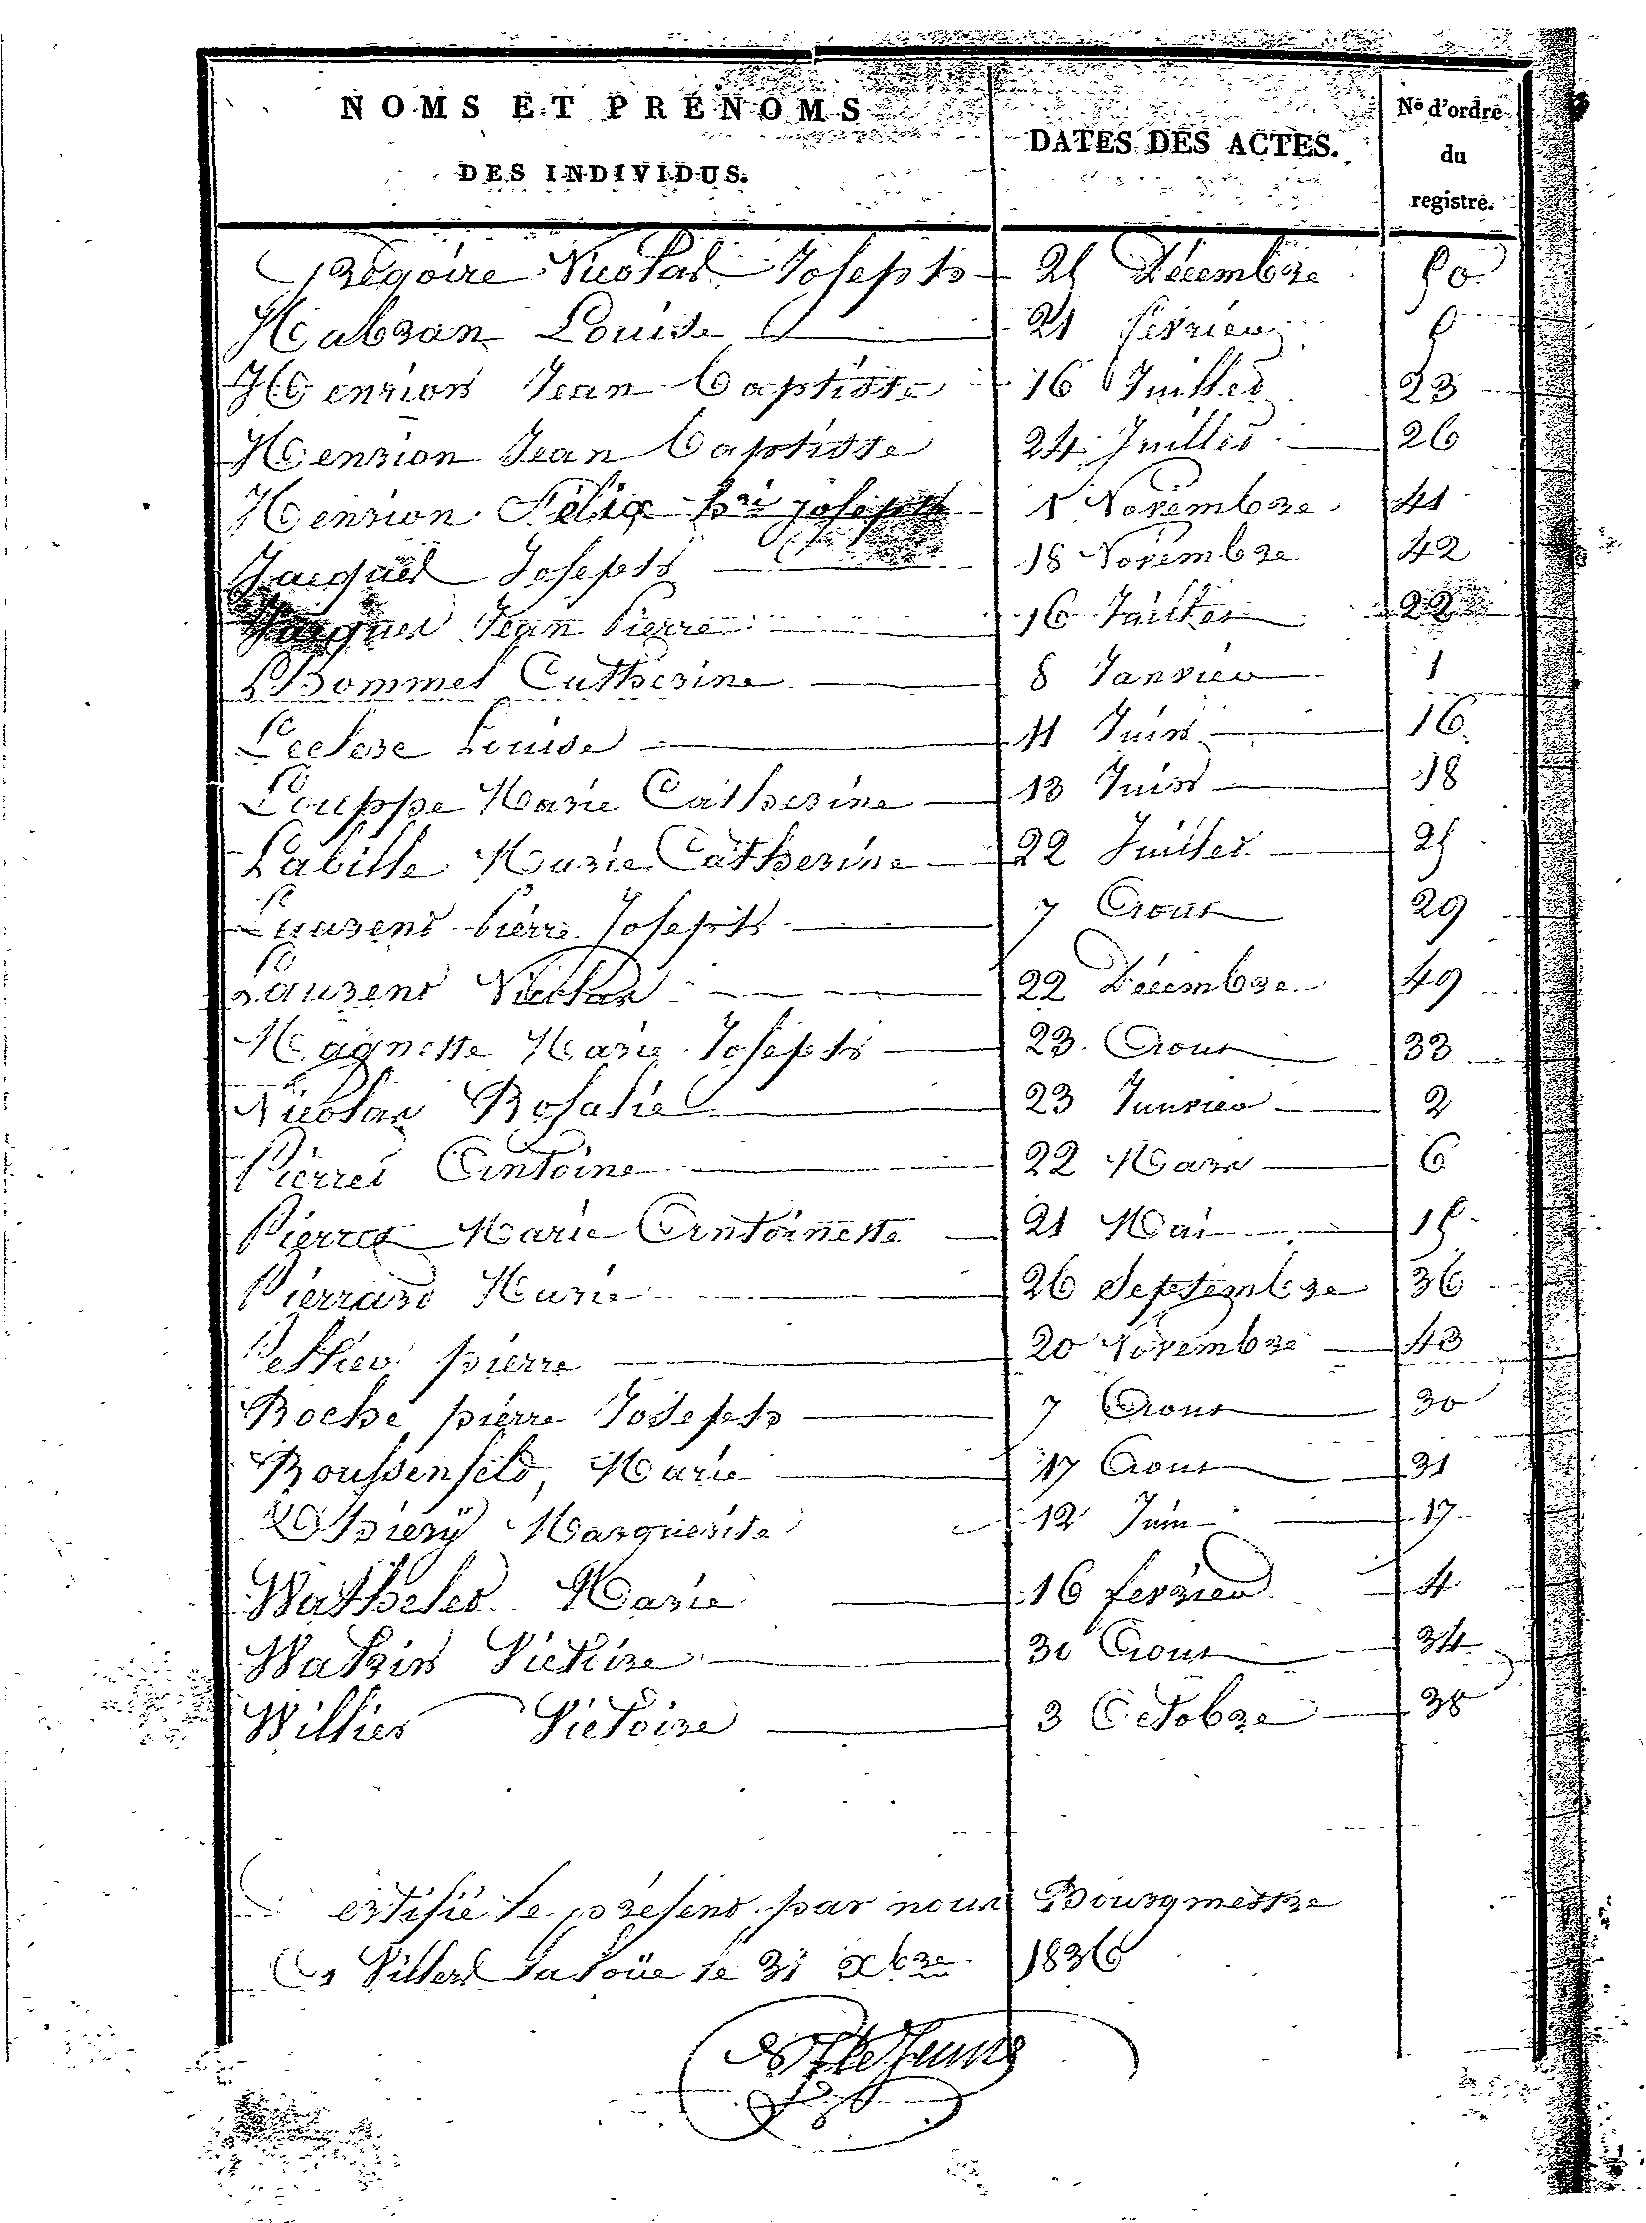 NOMS ET PRÉNOMS
DES INDIVIDUS.
DATES DES ACTES.
N° d'ordre
du
registre.
Grégoire Nicolas Joseph 25 Décembre 50
Habran Louise 21 fevrier 5
Henrion Jean baptiste 16 Juillet 23
Henrion Jean baptiste 24 Juillet 26
Henrion Félix joseph 1 Novembre 41
Jacquet Joseph 18 Novembre 42
Jacquet Jean Pierre 16 Juillet 22
Lhommel Catherine 8 Janvier 1
Leclere Louise 11 Juin 16
Louppe Marie Catherine 13 Juin 18
Labille Marie Catherine 22 Juillet 25
Laurent Pierre Joseph 7 Aout 29
Laurent Nicolas 22 Décembre 49
Magnette Marie Joseph 23 Aout 33
Nicolas Rosalie 23 Janvier 2
Pierret Antoine 22 Mars 6
Pierret Marie Antoinette 21 Mai 15
Pierrard Marie 26 Septembre 36
pierre 20 Novembre 43
Roche pierre Joseph 7 Aout 30
Roussenfeld, Marie 17 Aout 31
Thiery Marguerite 12 Juin 17
Wathelet Marie 16 fevrier 4
Watrin Victoire 30 Aout 34
Willier Victoire 3 Octobre 38
Certifié le présent par nous Bourgmestre
A Villers la loüe le 31 Xbre 1836